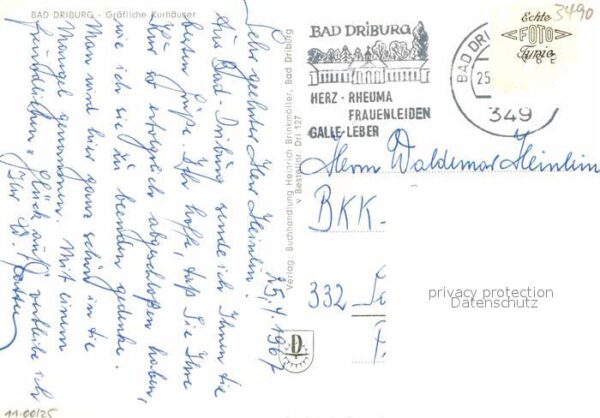 BAD DRIBURG - Gräfliche Kurhäuser
25.4.1967
Sehr geehrter Herr Heinlein!
Aus Bad-Driburg sende ich Ihnen die
besten Grüße. Ich hoffe, daß Sie Ihre
Kur so erfolgreich abgeschlossen haben,
wie ich sie zu beenden gedenke.
Man wird hier ganz schön in die
Mangel genommen. Mit einem
freundlichen Glück auf verbleibe ich
Ihr
Verlag: Buchhandlung Heinrich Brinkmöller, Bad Driburg
v Bestellnr. Dri 127
BAD DRIBURG
HERZ · RHEUMA
FRAUENLEIDEN
GALLE · LEBER
BAD DRI
25
349
Echte
FOTO
Typie
3490
Herrn Waldemar Heinlein
BKK-
332
privacy protection
Datenschutz
D
11.00/25